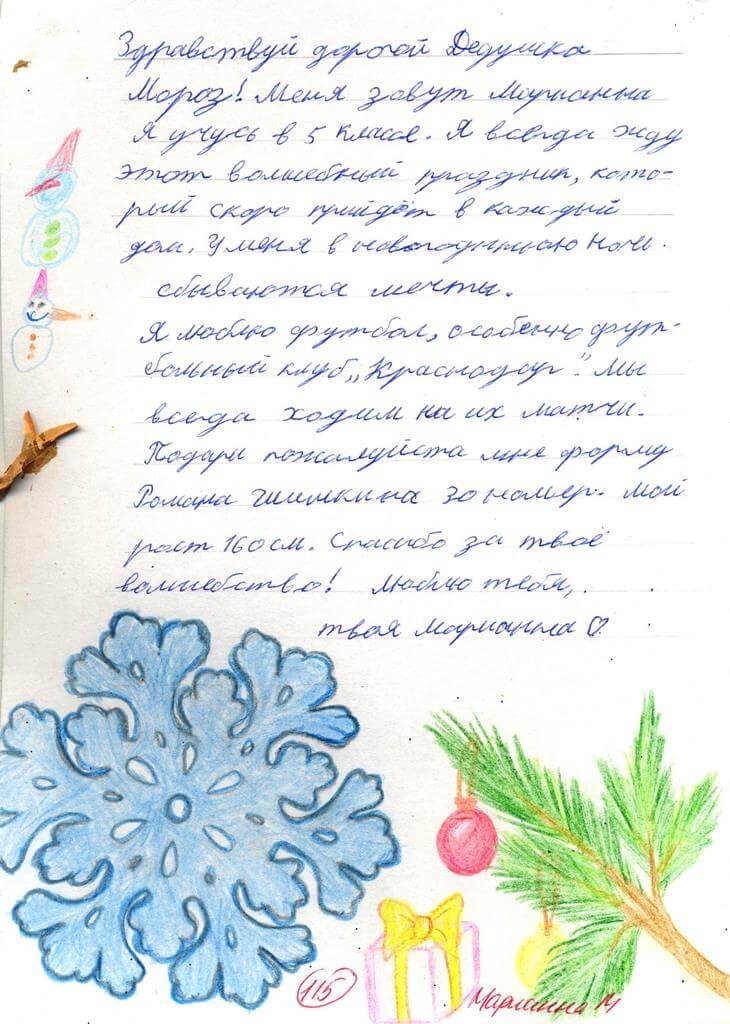 Здравствуй дорогой Дедушка
Мороз! Меня зовут Марианна
Я учусь в 5 классе. Я всегда жду
этот волшебный праздник, кото-
рый скоро прийдёт в каждый
дом. У меня в новогоднюю ночь
сбываются мечты.
Я люблю футбол, особенно фут-
больный клуб „Краснодар". Мы
всегда ходим на их матчи.
Подари пожалуйста мне форму
Романа Шишкина 30 номер. Мой
рост 160 см. Спасибо за твоё
волшебство! Люблю тебя,
твоя Марианна ♡
115
Марианна М